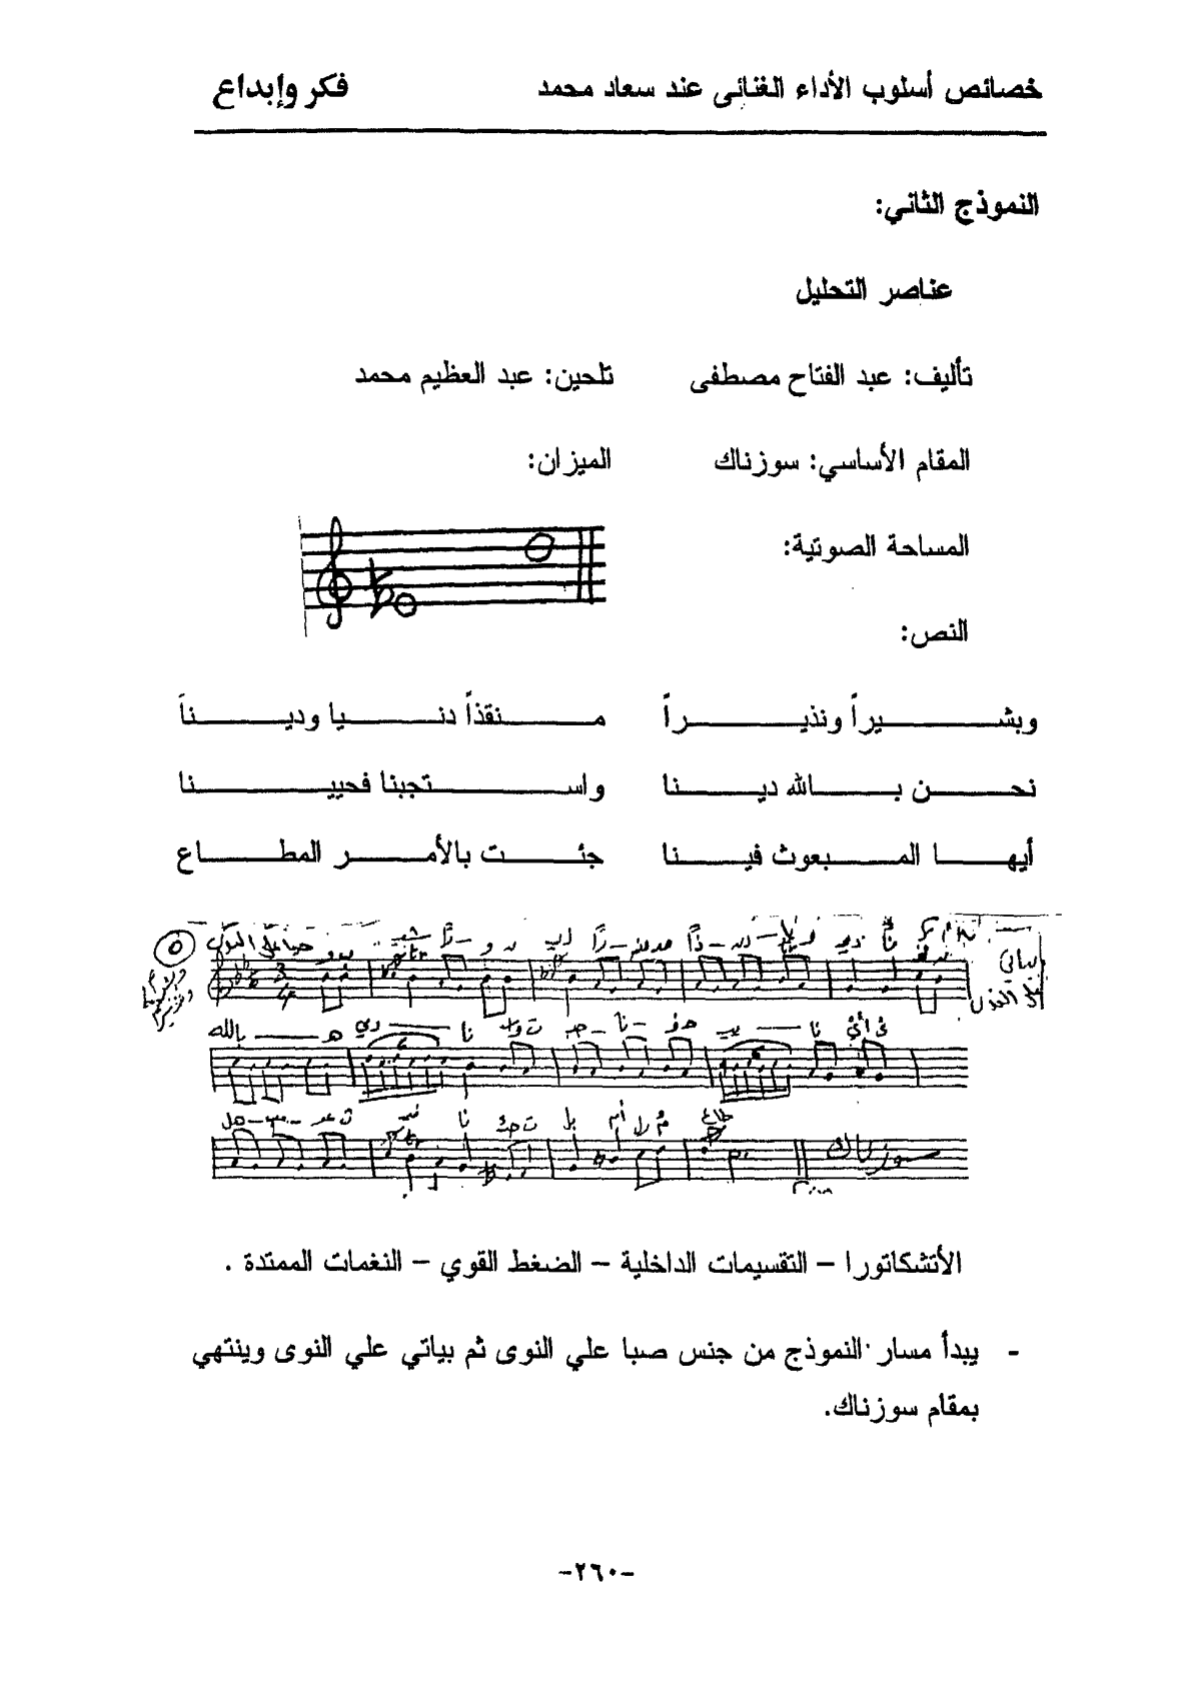 خصائص أسلوب الأداء الغنائى عند سعاد محمد فكر وإبداع
النموذج الثاني:
عناصر التحليل
تأليف: عبد الفتاح مصطفى تلحين: عبد العظيم محمد
المقام الأساسي: سوزناك الميزان:
المساحة الصوتية:
النص:
وبشـــــيراً ونذيـــــراً مـــــنقذاً دنـــــيا وديـــــناً
نحـــــن بـــــالله ديـــــنا واســـــتجبنا فحييـــــنا
أيهـــــا المـــــبعوث فيـــــنا جئـــــت بالأمـــــر المطـــــاع
٥
صبا على النوى
بياتي
على النوى
3
4
سوزناك
الأتشكاتورا – التقسيمات الداخلية – الضغط القوي – النغمات الممتدة .
- يبدأ مسار النموذج من جنس صبا علي النوى ثم بياتي علي النوى وينتهي
بمقام سوزناك.
-٢٦٠-